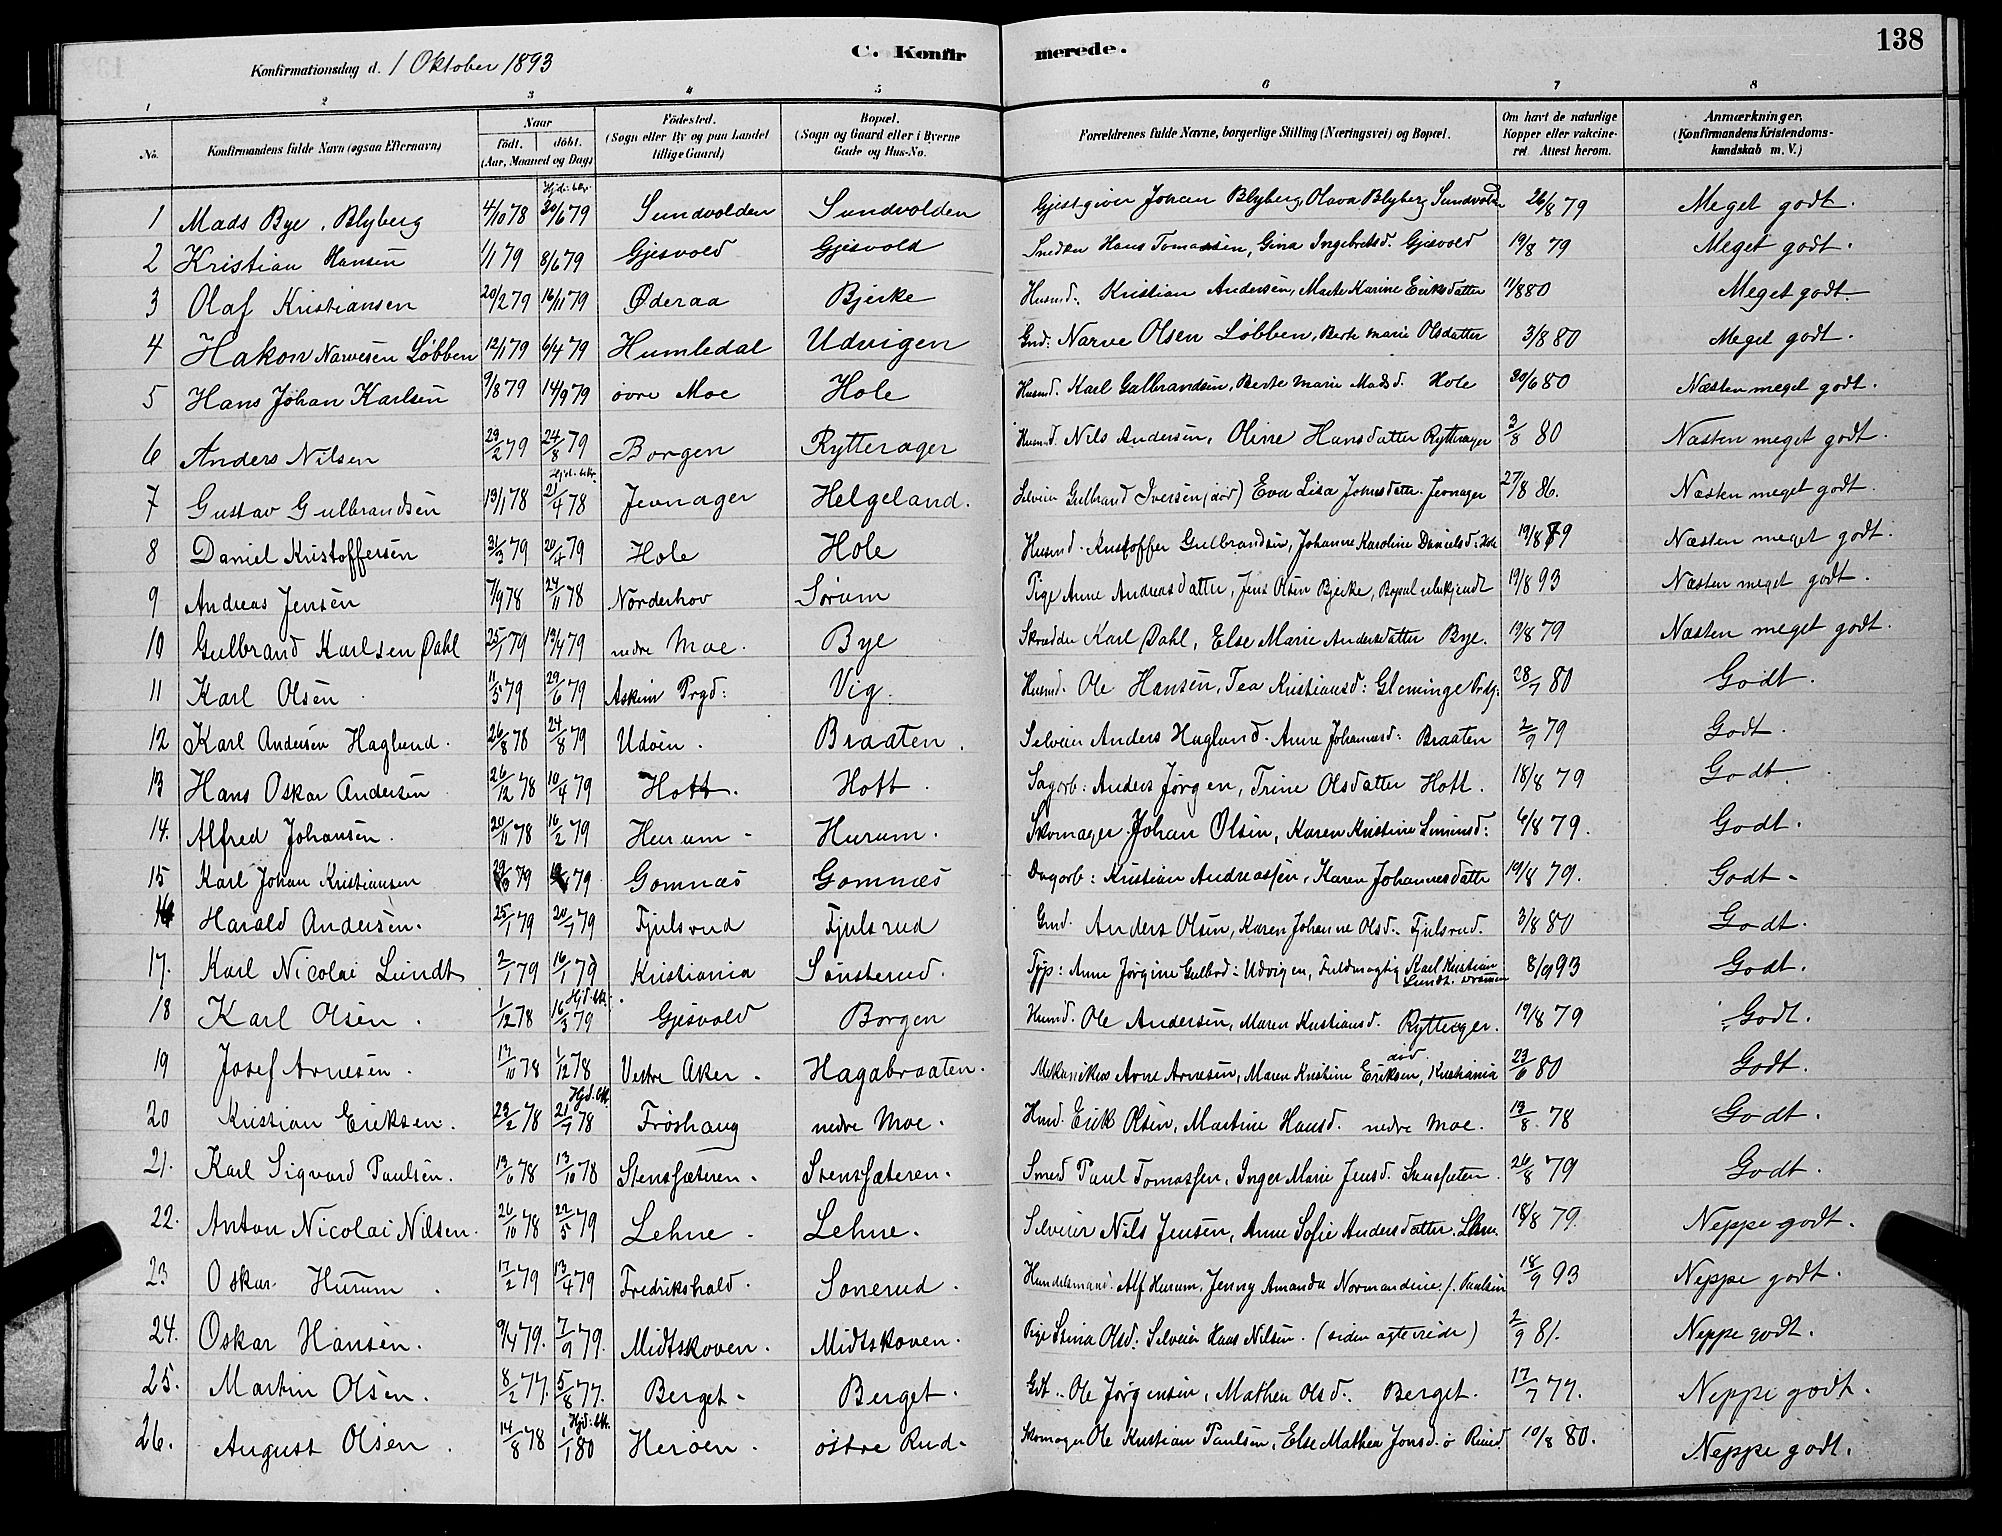 138
Konfirmationsdag d. 1 Oktober 1893 C. Konfirmerede.
1 2 3 4 5 6 7 8
No. Konfirmandens fulde Navn (ogsaa Efternavn) Naar født. døbt. (Aar, Maaned og Dag) Fødested. (Sogn eller By og paa Landet tillige Gaard) Bopæl. (Sogn og Gaard eller i Byerne Gade og Hus-No. Forældrenes fulde Navne, borgerlige Stilling (Næringsvei) og Bopæl. Om havt de naturlige Kopper eller vakcineret Attest herom. Anmærkninger. (Konfirmandens Kristendomskundskab m. V.)
1 Mads Bye, Blyberg 4/10 78 Hjd: bkr. 30/6 79 Sundvolden Sundvolden Gjestgiver Johan Blyberg, Olava Blyberg Sundvolden 26/8 79 Meget godt.
2 Kristian Hansen 1/1 79 8/6 79 Gjesvold Gjesvold Snedker Hans Tomassen, Gina Ingebretsd. Gjesvold 19/8 79 Meget godt.
3 Olaf Kristiansen 20/2 79 16/11 79 Øderaa Bjerke Husmd. Kristian Andersen, Marte Karine Eriksdatter 11/8 80 Meget godt.
4 Hakon Narvesen Løbben 12/1 79 6/4 79 Humledal Udvigen Gmd: Narve Olsen Løbben, Berte Marie Olsdatter 3/8 80 Meget godt.
5 Hans Johan Karlsen 9/8 79 14/9 79 øvre Moe Hole Husmd. Karl Gulbrandsen, Berte Marie Madsd. Hole 30/6 80 Næsten meget godt.
6 Anders Nilsen 29/2 79 24/8 79 Borgen Rytterager Husmd. Nils Andersen, Oline Hansdatter Rytterager 3/8 80 Næsten meget godt.
7 Gustav Gulbrandsen 13/1 78 Hjd. bkr. 21/4 78 Jevnager Helgeland. Selveier Gulbrand Iversen (død) Eva Lisa Johnsdatter Jevnager 27/8 86. Næsten meget godt.
8 Daniel Kristoffersen 31/3 79 20/4 79 Hole Hole Husmd. Kristoffer Gulbrandsen, Johanne Karoline Danielsd. Hole 19/8 79 Næsten meget godt.
9 Andreas Jensen 7/9 78 24/11 78 Norderhov Sørum Pige Anne Andreasdatter, Jens Olsen Bjerke, Bopæl ubekjendt 19/8 93 Næsten meget godt.
10 Gulbrand Karlsen Dahl 25/1 79 19/4 79 nedre Moe. Bye Skrædder Karl Dahl, Else Marie Andersdatter Bye. 19/8 79 Næsten meget godt.
11 Karl Olsen 11/5 79 29/6 79 Askim Prgd: Vig. Husmd. Ole Hansen, Tea Kristiansd: Gleminge Prdg. 28/7 80 Godt.
12 Karl Andersen Haglund. 26/8 78 24/8 79 Udøien. Braaten. Selveier Anders Haglund. Anne Johannesd: Braaten 2/9 79 Godt.
13 Hans Oskar Andersen 26/12 78 10/4 79 Hott. Hott. Sagarb: Anders Jørgen, Trine Olsdatter Hott. 18/8 79 Godt.
14. Alfred Johansen. 20/11 78 16/2 79 Hurum. Hurum. Skomager Johan Olsen, Karen Kristine Simensd: 6/8 79. Godt.
15 Karl Johan Kristiansen 79 79 Gomnæs Gomnæs Dagarb: Kristian Andreassen, Karen Johannesdatter 19/8 79. Godt.
16 Harald Andersen. 25/1 79 20/7 79 Fjulsrud Fjulsrud Gmd. Anders Olsen, Karen Johanne Olsd. Fjulsrud. 3/8 80 Godt.
17. Karl Nicolai Lundt 2/1 79 16/1 79 Kristiania Sønsterud. Tjp: Anne Jørgine Gulbrd: Udvigen, Fuldmægtig Karl Kristian Lundt. Drammen 8/9 93 Godt.
18 Karl Olsen. 1/12 78 Hjd. bkr. 16/3 79 Gjesvold Borgen Husmd. Ole Andersen, Maren Kristiansd. Rytterager. 19/8 79 Godt.
19 Josef Arnesen. 13/10 78 1/12 78 Vestre Aker. Hagabraaten. Mekanikus Arne Arnesen, Maren Kristine Eriksen, død Kristiania 23/6 80 Godt.
20 Kristian Eriksen. 23/2 78 Hjd. bkr. 21/7 78 Frøshaug nedre Moe. Husmd. Erik Olsen, Martine Hansd. nedre Moe. 13/8 78 Godt.
21. Karl Sigvard Paulsen. 13/6 78 13/10 78 Stenssæteren. Stenssæteren. Smed Paul Tomassen, Inger Marie Jensd. Stenssæteren 26/8 79 Godt.
22. Anton Nicolai Nilsen. 26/10 78 22/5 79 Lehne. Lehne. Selveier Nils Jensen, Anne Sofie Andersdatter. Lehne. 18/8 79. Neppe godt.
23 Oskar Hurum. 17/2 79 13/4 79 Fredrikshald. Sonerud. Handelsmand. Alf Hurum, Jenny Amanda Normandine f. Paulsen 18/9 93 Neppe godt.
24. Oskar Hansen. 9/4 79. 7/9 79. Midtskoven. Midtskoven. Pige Stina Olsd: Selveier Hans Nilsen. (siden ægteviede) 2/9 81. Neppe godt.
25. Martin Olsen. 8/2 77. 5/8 77. Berget. Berget. Gdb. Ole Jørgensen, Mathea Olsd. Berget. 17/7 77. Neppe godt.
26. August Olsen. 14/8 78 Hjd: bkr. 1/1 80 Herøen. østre Rud. Skomager Ole Kristian Paulsen, Else Mathea Jonsd. ø Ruud. 10/8 80. Neppe godt.